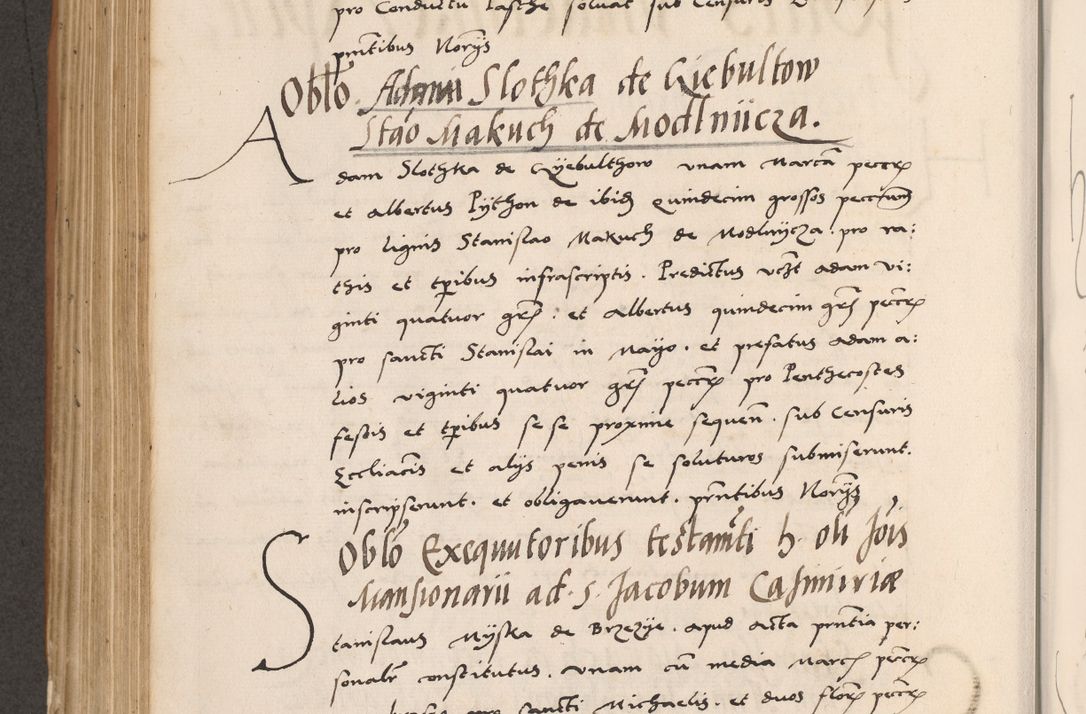 pro Conductu
prntibus Norijs
Oblo Adami Slothka de Giebultow
Stao Makuch de Modlniicza.
Adam Slothka de Gyebulthow unam Marcā peccēs
et Albertus Python de ibid quindecim grossos peccun
pro lignis Stanislao Makuch de Modlnycza. pro ra:
this et tpibus infrascriptis. Predictus vczt Adam vi:
ginti quatuor grs. et Albertus quindecim grs peccs
pro sancti Stanislai in Mayo. et prefatus Adam a:
lios viginti quatuor grs peccs pro Penthecostes
festis et tpibus se se proxime sequen. sub Censuris
Eccliacis et alijs penis se soluturos submiserunt.
inscripserunt. et obligaverunt. prntibus Norijs
Oblo Exequutoribus testamti h. oli Jois
Mansionarii ad. S. Jacobum Casimiriæ
Stanislaus Myska de Brzezye. apud acta prntia per:
sonalr constitutus. unam cū media Marcs peccs
pro sancti Michaelis. et duos flore peccs